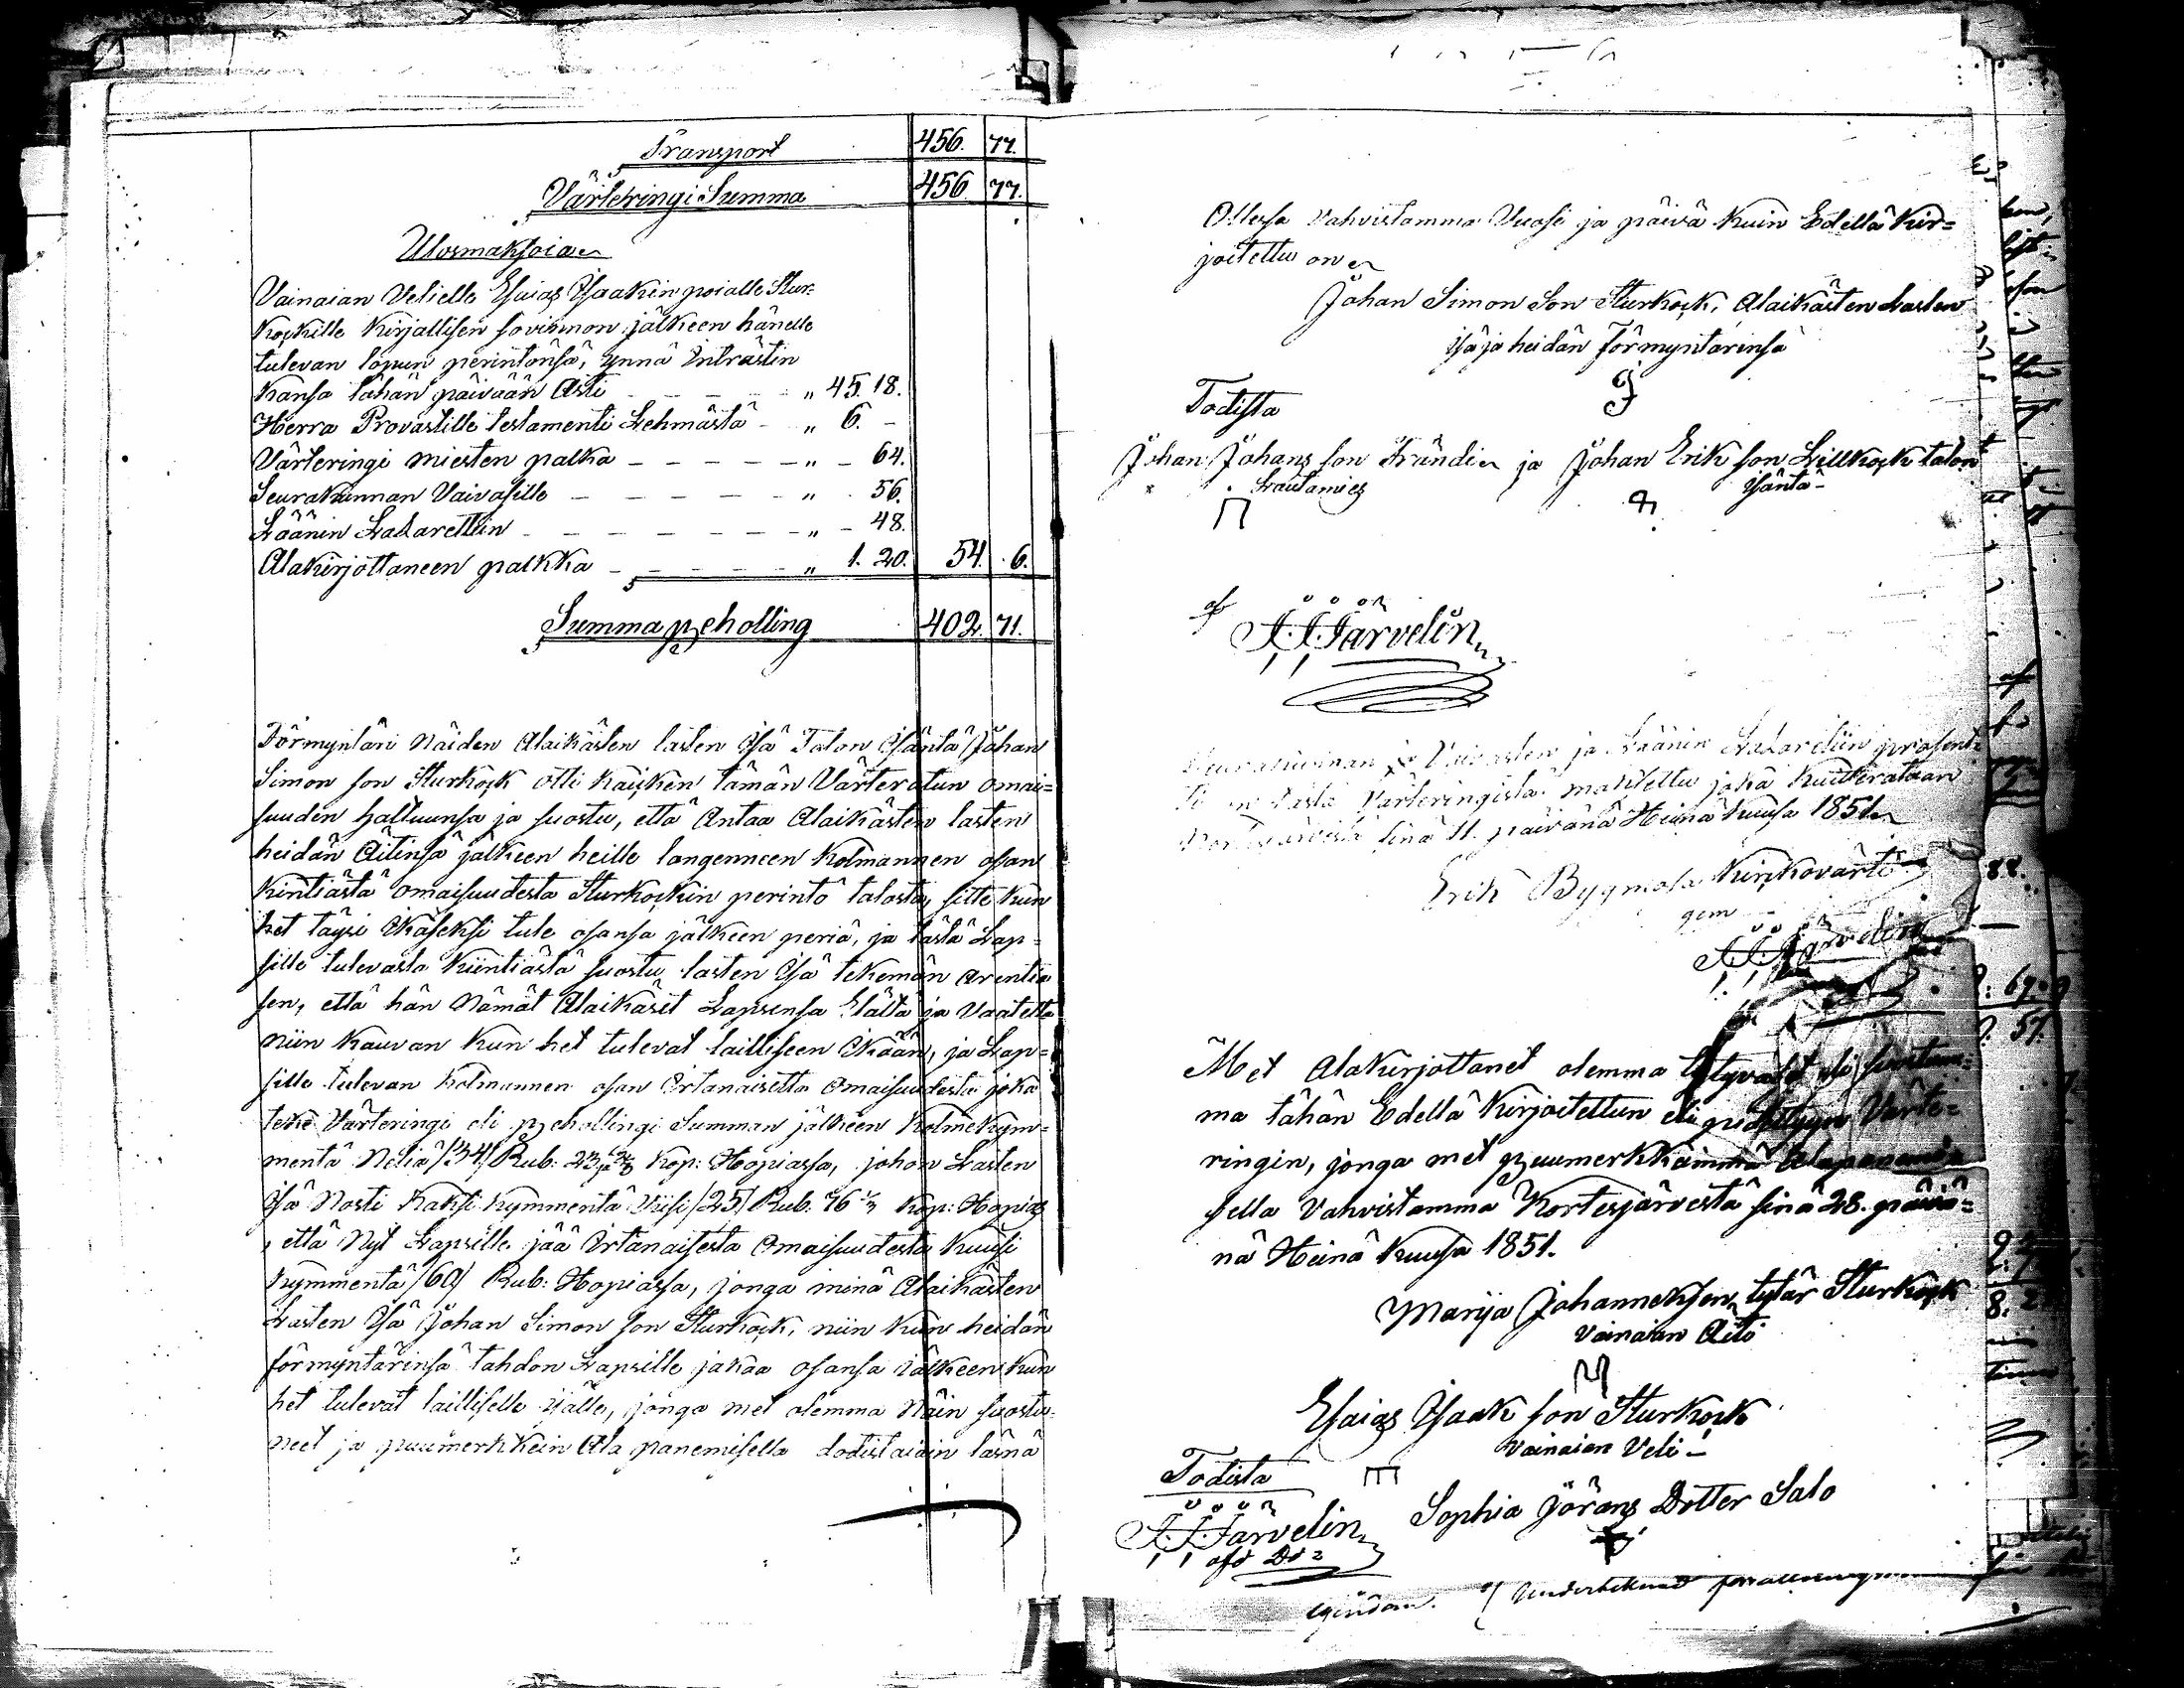 Transport 456. 77.
Värteringi Summa 456 77.
Ulosmaksoia
Vainaian Velielle Esaias Isaakin poialle Stur=
kockille Kirjallisen sovinnon jälkeen hänelle
tulevan lopun perintönsä, ynnä Inträstin
kansa tähän päivään Asti „ 45. 18.
Herra Provastille testamenti Lehmästä „ 6. –
Värteringi miesten palka „ – 64.
Seurakunnan Vaivasille „ 56.
Läänin Lasarettiin „ – 48.
Alakirjottaneen palkka „ 1. 20. 54. 6.
Summa peholling 402. 71.
Förmyntäri Näiden Alaikästen lasten Isä Talon Isäntä Johan
Simon son Sturkock otti kaicken tämän Värteratun omai=
suuden haltuunsa ja suostu, että Antaa Alaikästen lasten
heidän Äitinsä jälkeen heille langenneen Kolmannen osan
Kintiästä omaisuudesta Sturkockin perintö talosta, sitte kun
het täysi Ikäseksi tule osansa jälkeen periä, ja tästä Lap=
sille tulevasta Kiintiästä suostu lasten Isä tekemän arentia
sen, että hän Nämät Alaikäsit Lapsensa Elättä ja Vaatetta
niin kauvan kun het tulevat lailliseen Ikään, ja Lap=
sille tulevan Kolmannen osan Irtanaisetta Omaisuudesta joka
teke Värteringi eli pehollingi Summan jälkeen Kolmekym=
mentä Neliä /:34/ Rub: 23 kop: Hopiassa, johon Lasten
Isä Nosti Kaksi kymmentä Viisi /25/ Rub. 76 ⅓ kop: Hopias
, että Nyt Lapsille jää Irtanaisesta Omaisuudesta Kuusi
kymmentä /60/ Rub: Hopiassa, jonga minä Alaikästen
Lasten Isä Johan Simon son Sturkock, niin kun heidän
förmyntärinsä tahdon Lapsille jakaa osansa jälkeen kun
het tulevat lailliselle ijälle, jonga met olemma Näin suostu=
neet ja puumerkkein Ala panemisella todistaiain läsnä
Ollessa vahvistamma Vuosi ja päivä kuin Edellä kir=
joitettu on
Johan Simon Son Sturkock, Alaikästen Lasten
isä ja heidän Förmyntärinsä
Todista
Johan Johans son Frändi ja Johan Erik son Lillkock talon
Lautamies Isäntä
af
J. J. Järvelin
Seurakunnan Vaivasten ja Läänin Lasarettiin prosenti
on tästä Värteringistä maksettu joka kuiterataan
Kortesjärvistä sinä 11. päivänä Heinä kuusa 1851
Erik Bygmäs Kirkkovärti
gm
J. J. Järvelin
Met Alakirjottanet olemma tytyväiset eli suostum=
ma tähän Edellä kirjoitettun eli pidettyyn Värte=
ringin, jonga met puumerkkäimmä Alapanemi=
sella Vahvistamma Kortesjärvestä sinä 28. päivä=
nä Heinä kuusa 1851.
Marija Johanneksen tytär Sturkock
Vainaian Äiti
Esaias Isaak son Sturkock
Vainaian Veli –
Todista
J. J. Järvelin
Sophia Jörans Dotter Salo